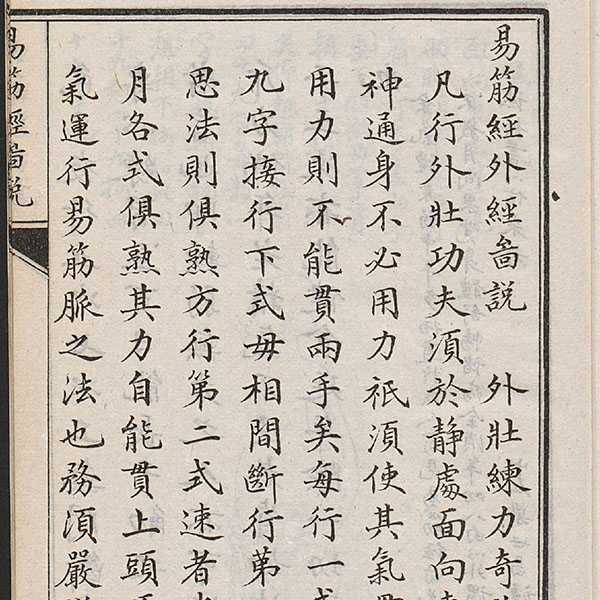 易筋經外經啚説 外壯練力奇
凡行外壯功夫須於静處面向
神通身不必用力衹須使其氣
用力則不能貫兩手矣每行一
九字接行下式毋相間斷行第
思法則俱熟方行第二式速者
月各式俱熟其力自能貫上頭
氣運行易筋脈之法也務須嚴
易筋經啚説